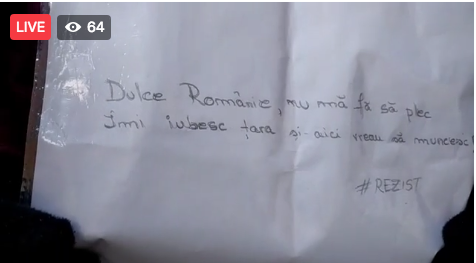 LIVE 64
Dulce Românie, nu mă fă să plec
Îmi iubesc țara și-aici vreau să muncesc!
#REZIST